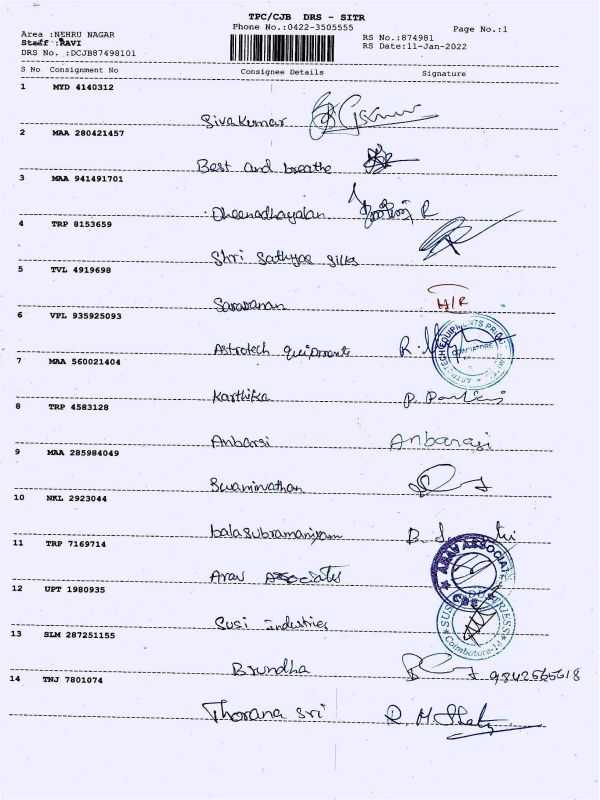 TPC/CJB DRS - SITR
Phone No.:0422-3505555 Page No.:1
Area :NEHRU NAGAR RS No.:874981
Staff :RAVI RS Date:11-Jan-2022
DRS No. :DCJB87498101
S No Consignment No Consignee Details Signature
1 MYD 4140312
Sivakumar
2 MAA 280421457
Best and breathe
3 MAA 941491701
Dheenadhayalan
4 TRP 8153659
Shri Sathyae Silks
5 TVL 4919698
Saravanan H/R
6 VPL 935925093
Astrotech
7 MAA 560021404
Karthika
8 TRP 4583128
Anbarsi Anbarasi
9 MAA 285984049
Swaminathan
10 NKL 2923044
balasubramaniyam
11 TRP 7169714
Arav Associates ARAV ASSOCIATES CBE
12 UPT 1980935
Susi industries Coimbatore
13 SLM 287251155
Brundha
14 TNJ 7801074
Thorana Sri